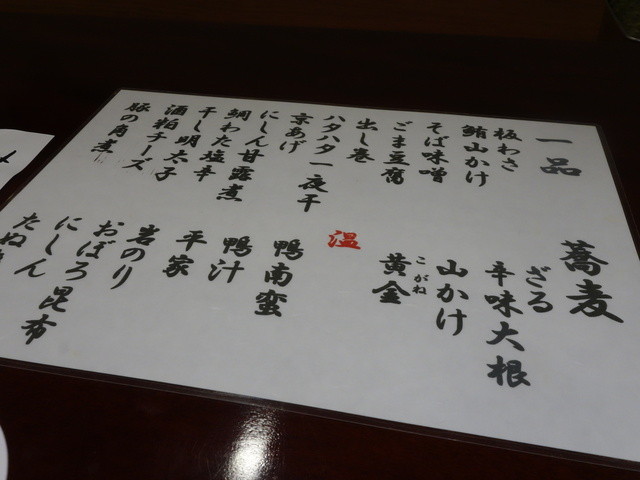 一品
板わさ
鮪山かけ
そば味噌
ごま豆腐
出し巻
ハタハタ一夜干
京あげ
にしん甘露煮
鯛わた塩辛
干し明太子
酒粕チーズ
豚の角煮
蕎麦
ざる
辛味大根
山かけ
こがね
黄金
温
鴨南蛮
鴨汁
平家
岩のり
おぼろ昆布
にしん
たぬ